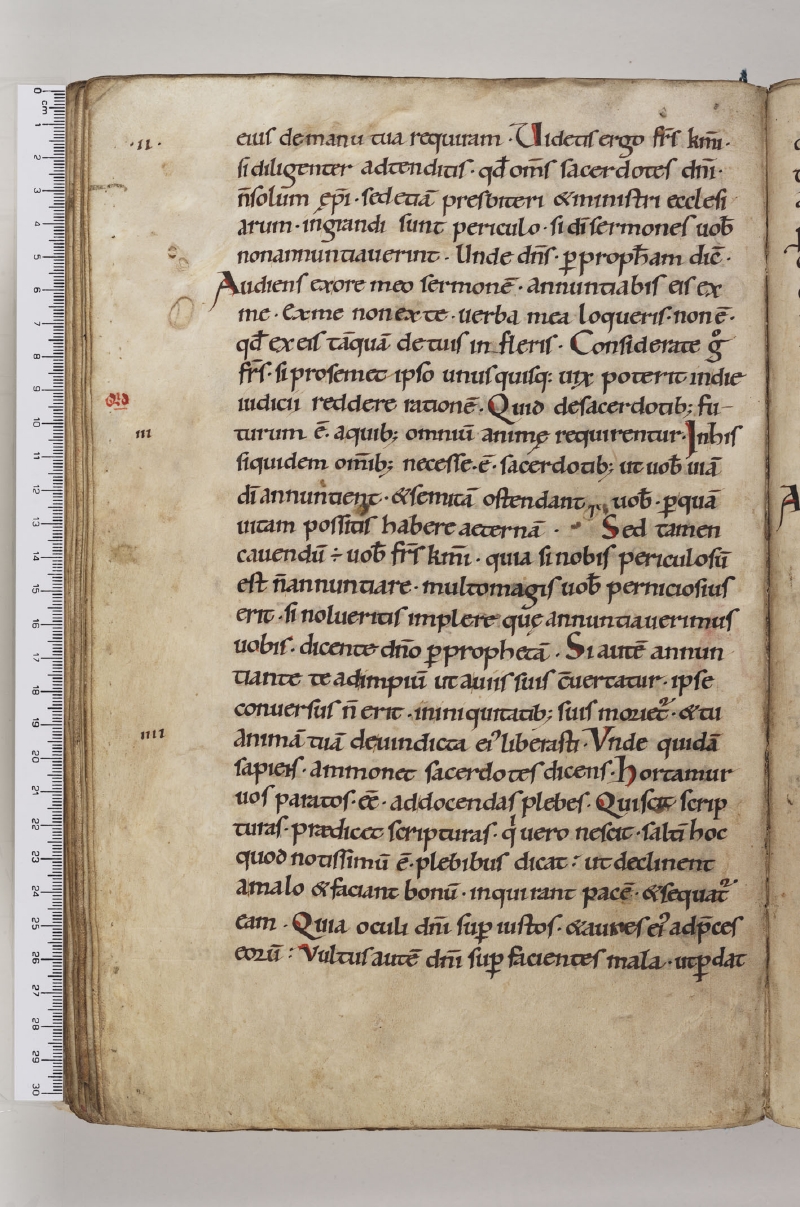 ·II·
eius de manu tua requiram · Uidetis ergo fr̄s km̄i·
si diligenter adtenditis · qd̄ om̄s sacerdotes dn̄i·
n̄ solum ep̄i · sed etiā presbiteri & ministri ecclesi
arum · in grandi sunt periculo · si dī sermones uob̄
non annuntiauerint · Unde dn̄s · ꝑ proph̄am dic̄ ·
Audiens ex ore meo sermonē · annuntiabis eis ex
me · Ex me non ex te · uerba mea loqueris · non ē ·
qd̄ ex eis tāquā de tuis infleris · Considerate gͦ
fr̄s · si pro semet ipso unusquisq: uix poterit in die
iudicii reddere rationē · Quid de sacerdotib; fu–
III
turum ē · a quib; omniū animę requirentur · Inhis
siquidem om̄ib; necesse · ē · sacerdotib; ut uob̄ uiā
dī annuntient · & semitā ostendant uob̄ · ꝑ quā
uitam possitis habere aeternā · Sed tamen
cauendū ÷ uob̄ fr̄s km̄i · quia si nobis periculosū
est n̄ annuntiare · multo magis uob̄ perniciosius
erit · si nolueritis implere quę annuntiauerimus
uobis · dicente dn̄o ꝑ prophetā · Si autē annun
tiante te ad impiū ut a uiis suis c̄uertatur · ipse
conuersus n̄ erit · in iniquitatib; suis moriet᷑ · & tu
IIII
animā tuā de uindicta ei᾽ liberasti · Vnde quidā
sapiens · ammonet sacerdotes dicens · Hortamur
uos paratos · ēē · ad docendas plebes · Qui scit scrip
turas · prædicet scripturas · qͥ uero nescit · saltī hoc
quod notissimū ē · plebibus dicat : ut declinent
a malo & faciant bonū · inquirant pacē · & sequat᷑
eam · Quia oculi dn̄i suꝑ iustos · & aures ei᾽ ad p̄ces
eorū : Vultus autē dn̄i suꝑ facientes mala · ut ꝑdat